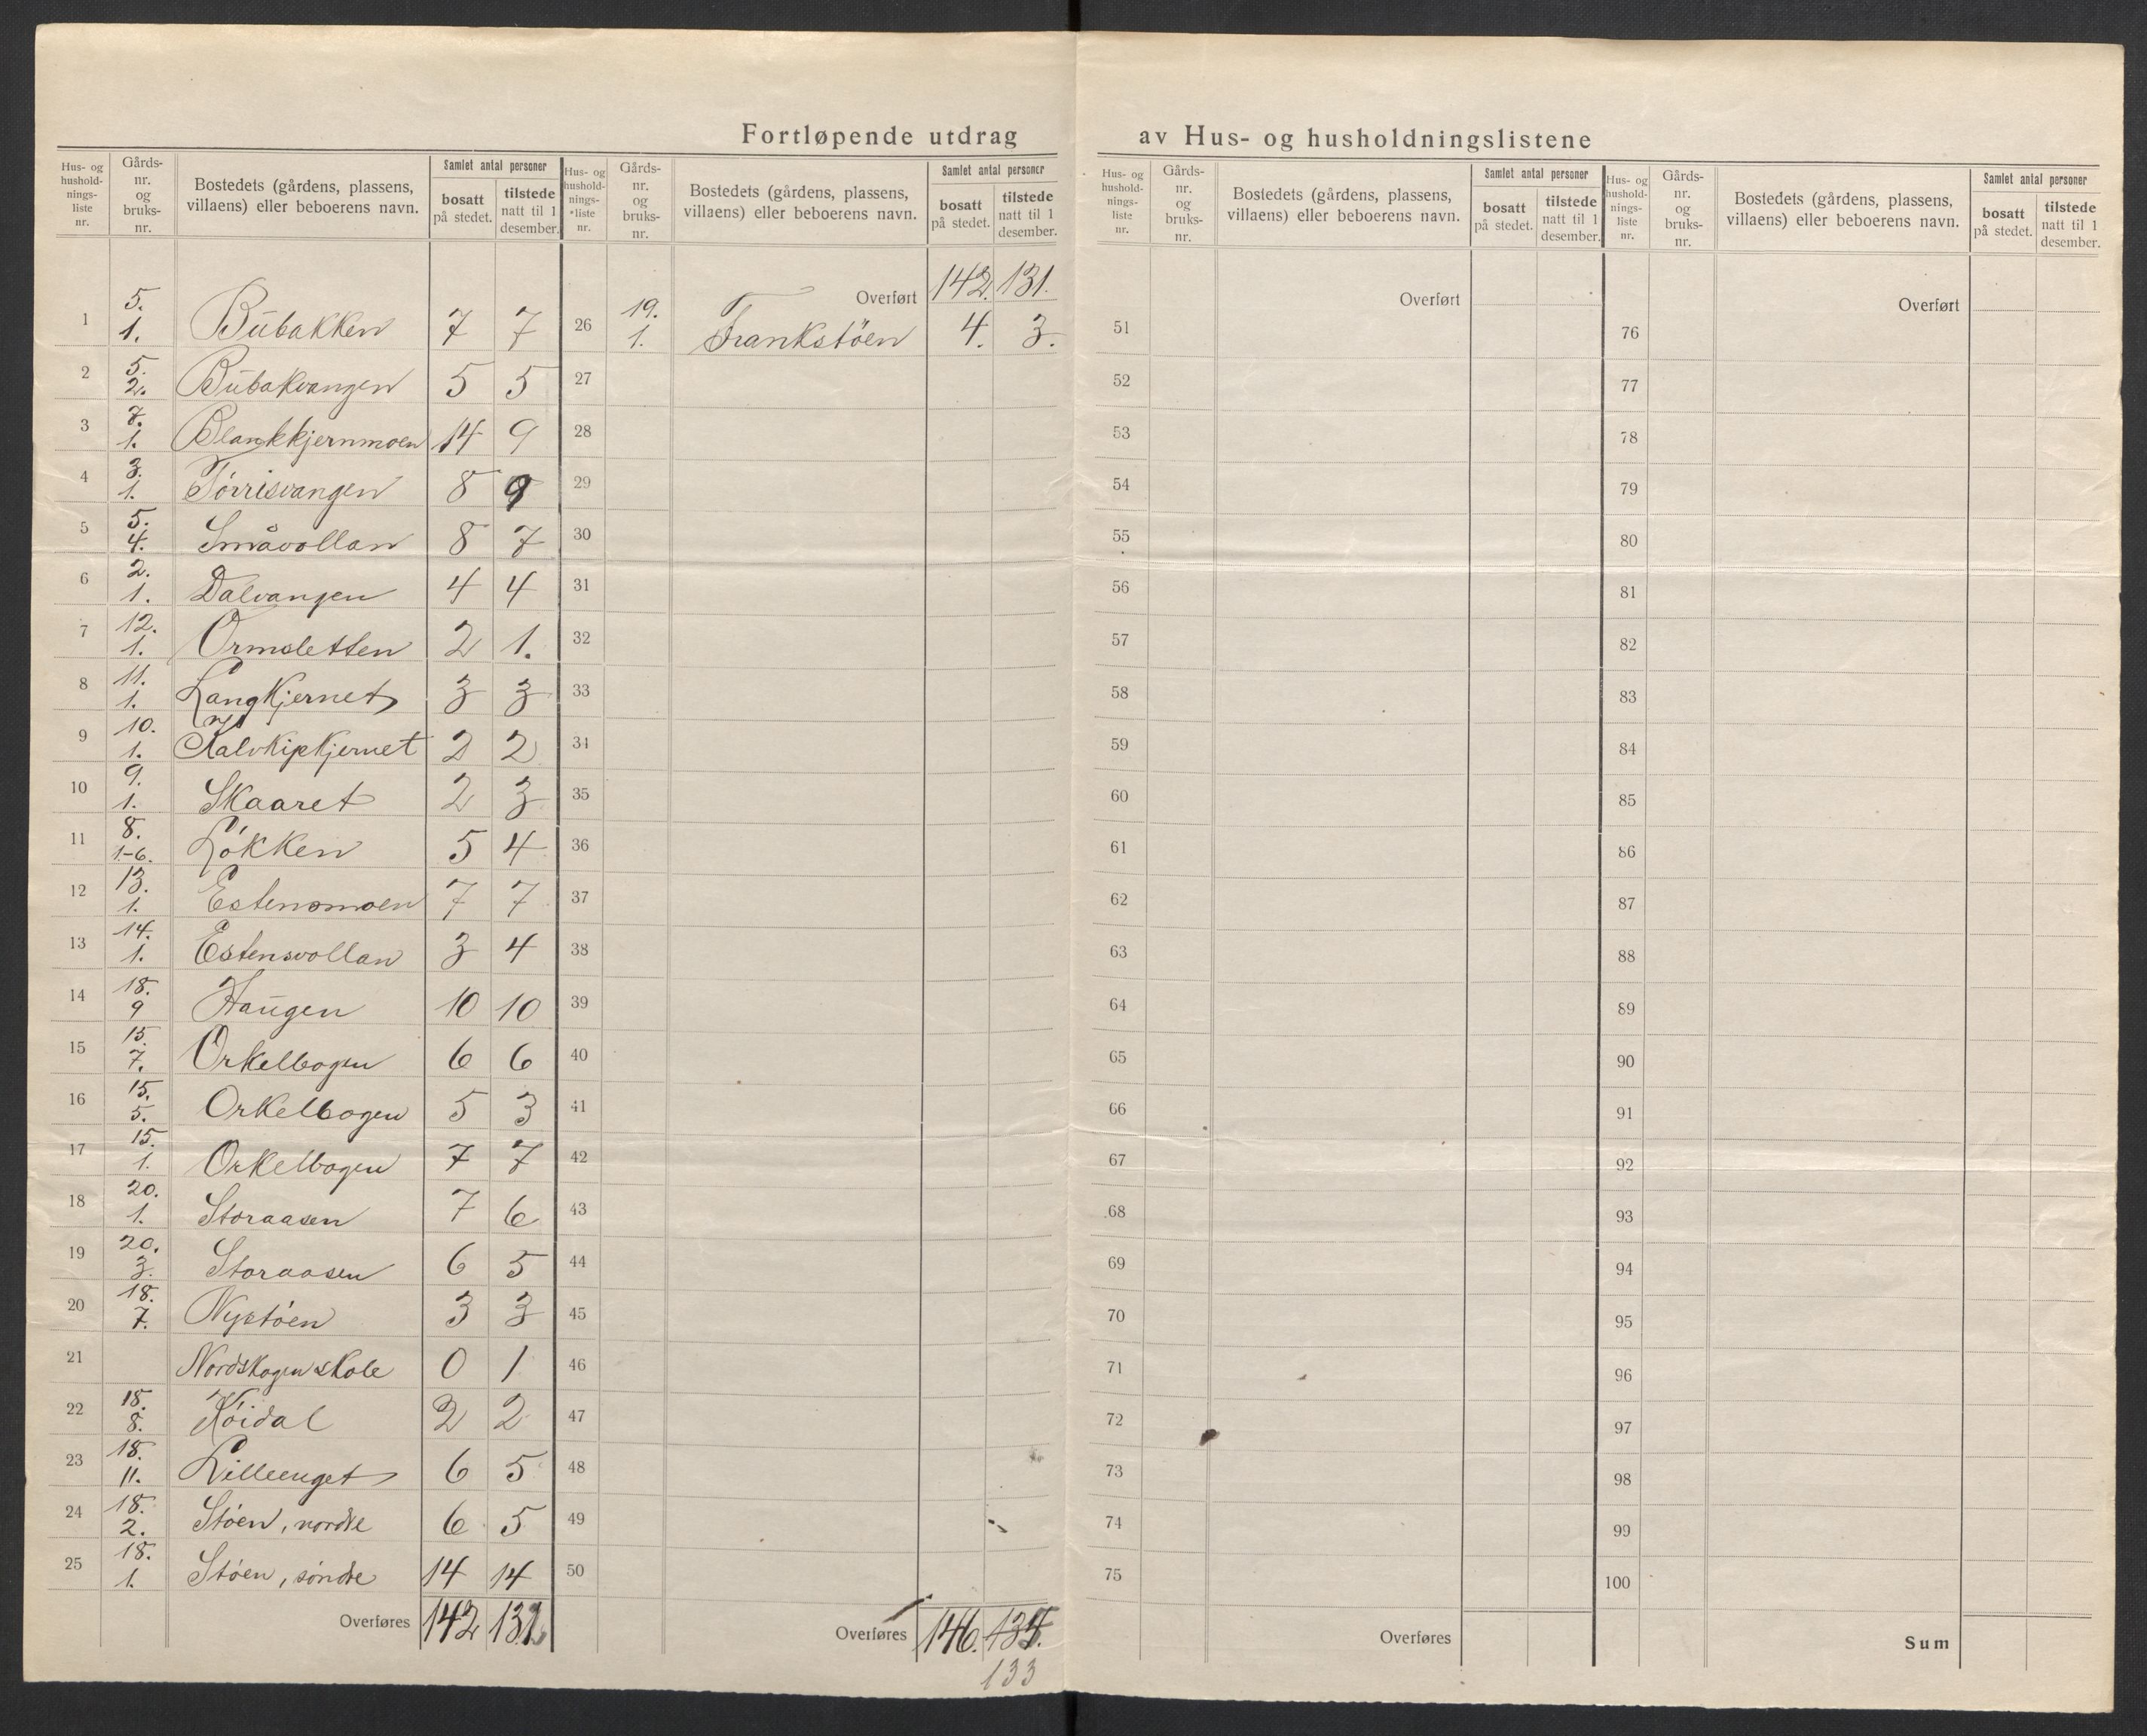 Fortløpende utdrag av Hus- og husholdningslistene
Hus- og husholdnings-liste nr. | Gårds-nr. og bruks-nr. | Bostedets (gårdens, plassens, villaens) eller beboerens navn. | Samlet antal personer | bosatt på stedet. | tilstede natt til 1 desember.
1 | 5. 1. | Bübakken | 7 | 7
2 | 5. 2. | Bübakvangen | 5 | 5
3 | 7. 1. | Blankkjernmoen | 14 | 9
4 | 3. 1. | Törrisvangen | 8 |
5 | 5. 4. | Småvollan | 8 | 7
6 | 2. 1. | Dalvangen | 4 | 4
7 | 12. 1. | Ormsletten | 2 | 1.
8 | 11. 1. | Langkjernet | 3 | 3
9 | 10. 1. | Kalvkipkjernet | 2 | 2
10 | 9. 1. | Skaaret | 2 | 3
11 | 8. 1-6. | Lökken | 5 | 4
12 | 13. 1. | Estensmoen | 7 | 7
13 | 14. 1. | Estensvollan | 3 | 4
14 | 18. 9 | Haugen | 10 | 10
15 | 15. 7. | Orkelbogen | 6 | 6
16 | 15. 5. | Orkelbogen | 5 | 3
17 | 15. 1. | Orkelbogen | 7 | 7
18 | 20. 1. | Storaasen | 7 | 6
19 | 20. 3. | Storaasen | 6 | 5
20 | 18. 7. | Nystöen | 3 | 3
21 | Nordskogen skole | 0 | 1
22 | 18. 8. | Köidal | 2 | 2
23 | 18. 11. | Lilleenget | 6 | 5
24 | 18. 2. | Stöen, nordre | 6 | 5
25 | 18. 1. | Stöen, söndre | 14 | 14
Overføres | 142 |
Hus- og husholdnings-liste nr. | Gårds-nr. og bruks-nr. | Bostedets (gårdens, plassens, villaens) eller beboerens navn. | Samlet antal personer | bosatt på stedet. | tilstede natt til 1 desember.
Overført | 142. | 131.
26 | 19. 1. | Frankstöen | 4. | 3.
27
28
29
30
31
32
33
34
35
36
37
38
39
40
41
42
43
44
45
46
47
48
49
50
Overføres | 146. |
133
Hus- og husholdnings-liste nr. | Gårds-nr. og bruks-nr. | Bostedets (gårdens, plassens, villaens) eller beboerens navn. | Samlet antal personer | bosatt på stedet. | tilstede natt til 1 desember.
Overført
51
52
53
54
55
56
57
58
59
60
61
62
63
64
65
66
67
68
69
70
71
72
73
74
75
Overføres
Hus- og husholdnings-liste nr. | Gårds-nr. og bruks-nr. | Bostedets (gårdens, plassens, villaens) eller beboerens navn. | Samlet antal personer | bosatt på stedet. | tilstede natt til 1 desember.
Overført
76
77
78
79
80
81
82
83
84
85
86
87
88
89
90
91
92
93
94
95
96
97
98
99
100
Sum